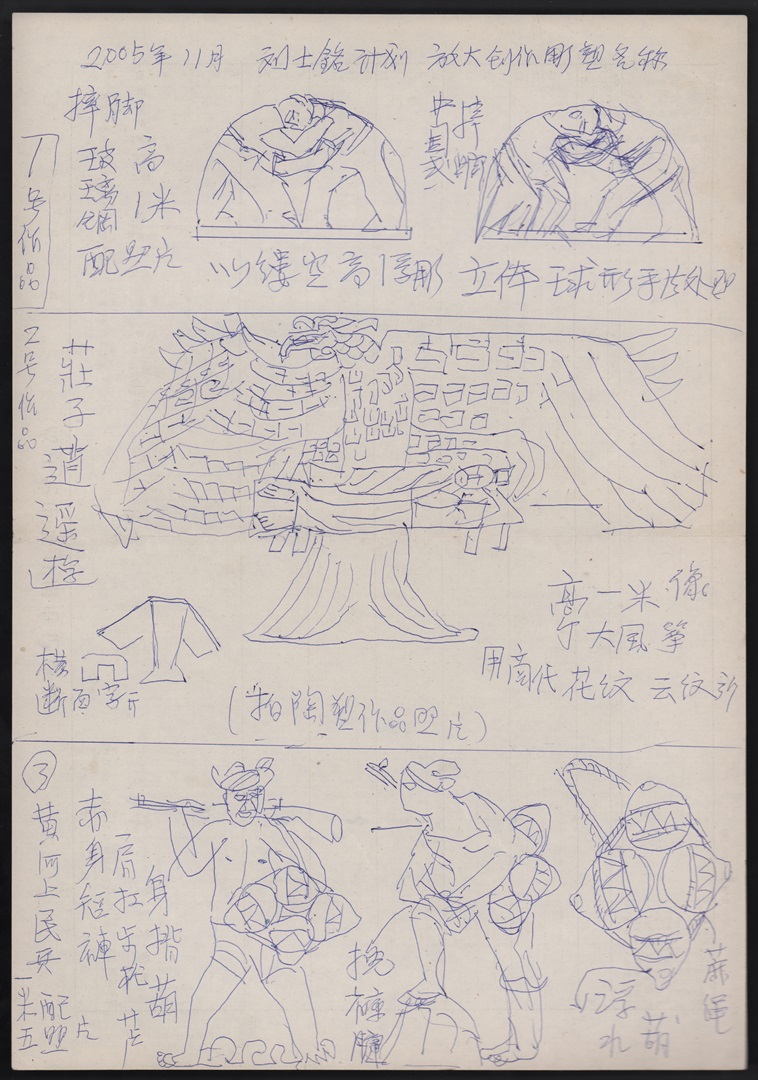 2005年11月 刘士銘计划 放大创作雕塑名称
1号作品
摔脚
玻璃钢
高1米
配照片
中国式
摔脚
以缕空高浮雕 立体球形手法处理
2号作品
莊子逍遥游
高一米像
个大風筝
用商代花纹 云纹
横断面
(拍陶塑作品照片)
③
黄河上民兵
一米五
配照片
赤身短褲
肩扛步枪
身揹葫芦
挽褲腿
浮水葫
麻绳